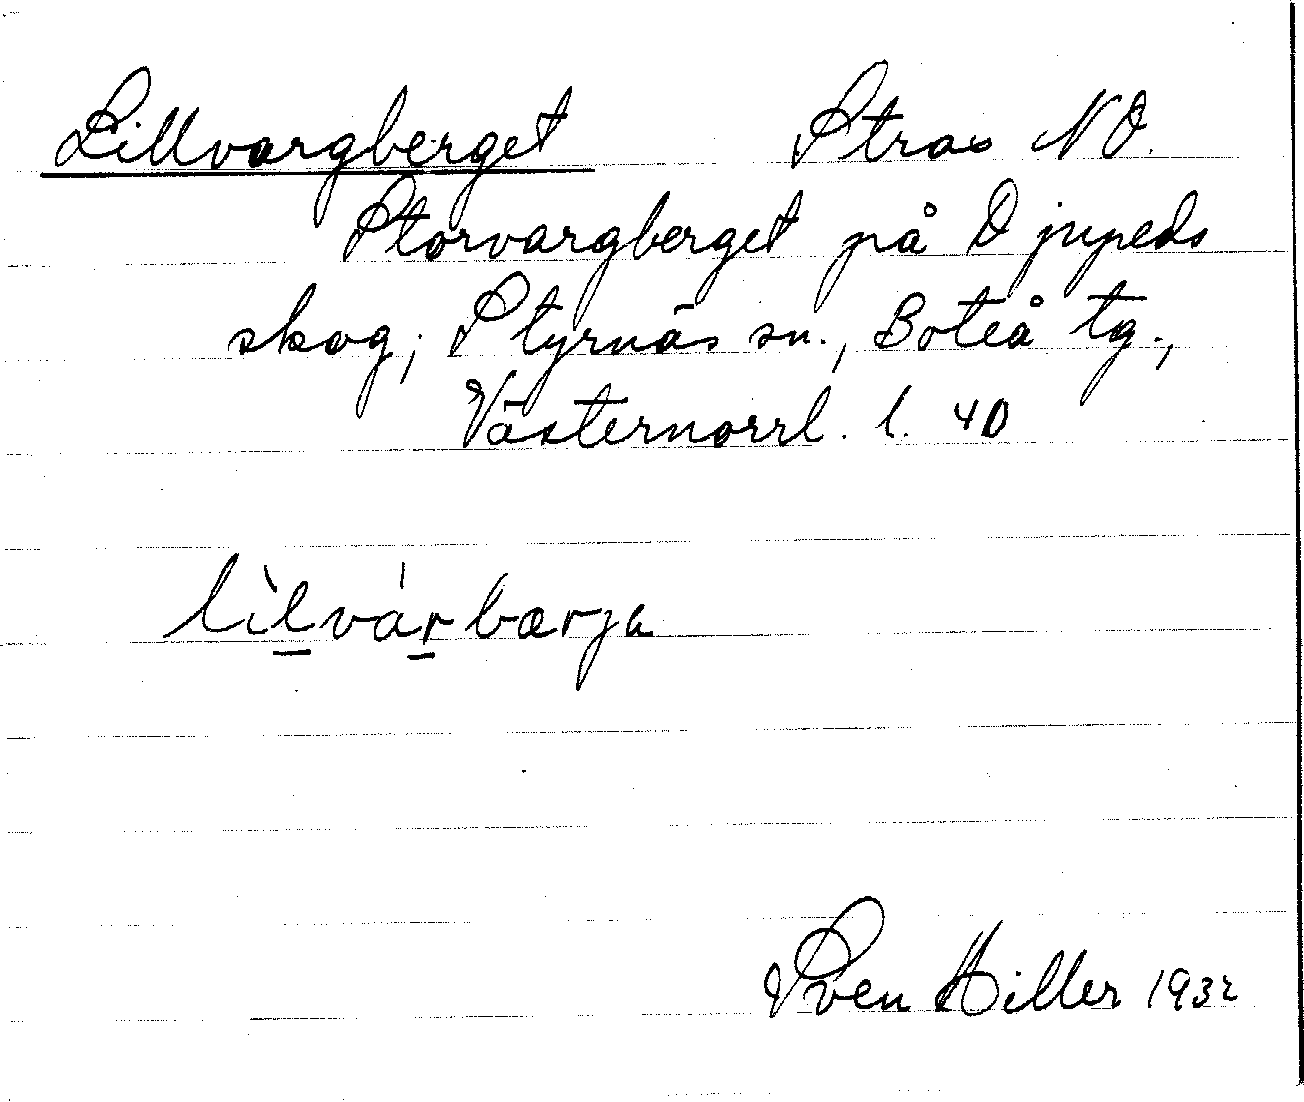 Lillvargberget Strax NO.
Storvargberget på Djupeds
skog; Styrnäs sn., Boteå tg.,
Västernorrl. l. 40
lìl̲vár̲bærja
Sven Hiller 1932